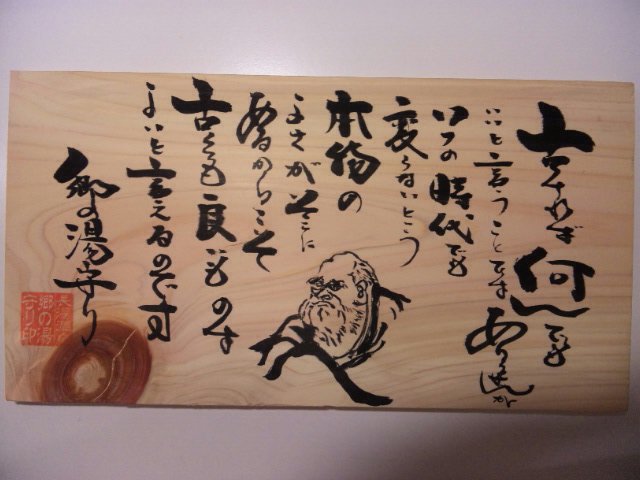 古ければ何でも
いいと言うことではありませんが
いつの時代でも
変らないという
本物の
よさがそこに
あるからこそ
古くても良いものは
よいと言えるのです
郷の湯守り
郷の湯
守り印